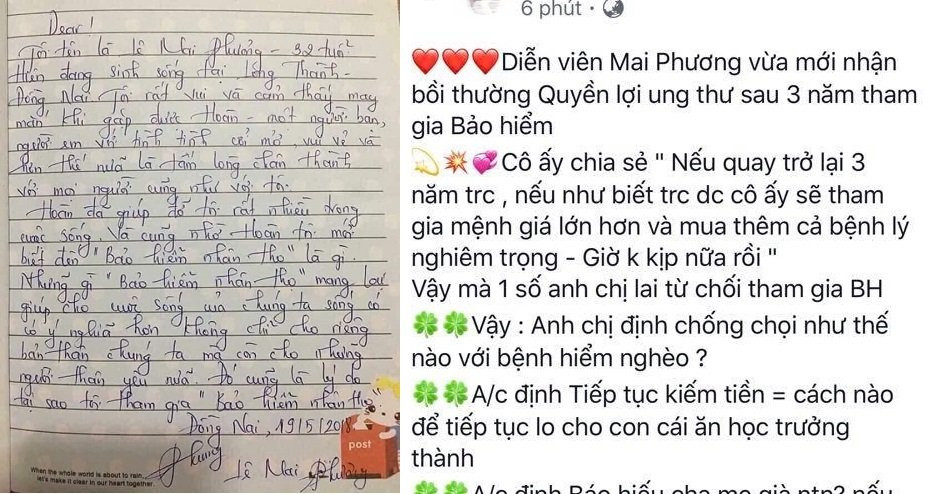 Dear!
Tôi tên là Lê Mai Phượng - 32 tuổi
Hiện đang sinh sống tại Long Thành -
Đồng Nai. Tôi rất vui và cảm thấy may
mắn khi gặp được Hoàn - một người bạn,
người em với tính tình cởi mở, vui vẻ và
hơn thế nữa là tấm lòng chân thành
với mọi người cũng như với tôi.
Hoàn đã giúp đỡ tôi rất nhiều trong
cuộc sống. Và cũng nhờ Hoàn tôi mới
biết đến "Bảo hiểm nhân thọ" là gì.
Những gì "Bảo hiểm nhân thọ" mang lại
giúp cho cuộc sống của chúng ta sống có
có ý nghĩa hơn không chỉ cho riêng
bản thân chúng ta mà còn cho những
người thân yêu nữa. Đó cũng là lý do
tại sao tôi tham gia "Bảo hiểm nhân thọ"
Đồng Nai, 19/5/2018
Phượng
Lê Mai Phượng
post
When the whole world is about to rain,
let's make it clear in our heart together.
6 phút ·
❤️❤️❤️Diễn viên Mai Phương vừa mới nhận
bồi thường Quyền lợi ung thư sau 3 năm tham
gia Bảo hiểm
💫💥💞Cô ấy chia sẻ " Nếu quay trở lại 3
năm trc , nếu như biết trc dc cô ấy sẽ tham
gia mệnh giá lớn hơn và mua thêm cả bệnh lý
nghiêm trọng - Giờ k kịp nữa rồi "
Vậy mà 1 số anh chị lai từ chối tham gia BH
🍀🍀Vậy : Anh chị định chống chọi như thế
nào với bệnh hiểm nghèo ?
🍀🍀A/c định Tiếp tục kiếm tiền = cách nào
để tiếp tục lo cho con cái ăn học trưởng
thành
🍀🍀A/c định Báo hiếu cha mẹ già ntn? nếu